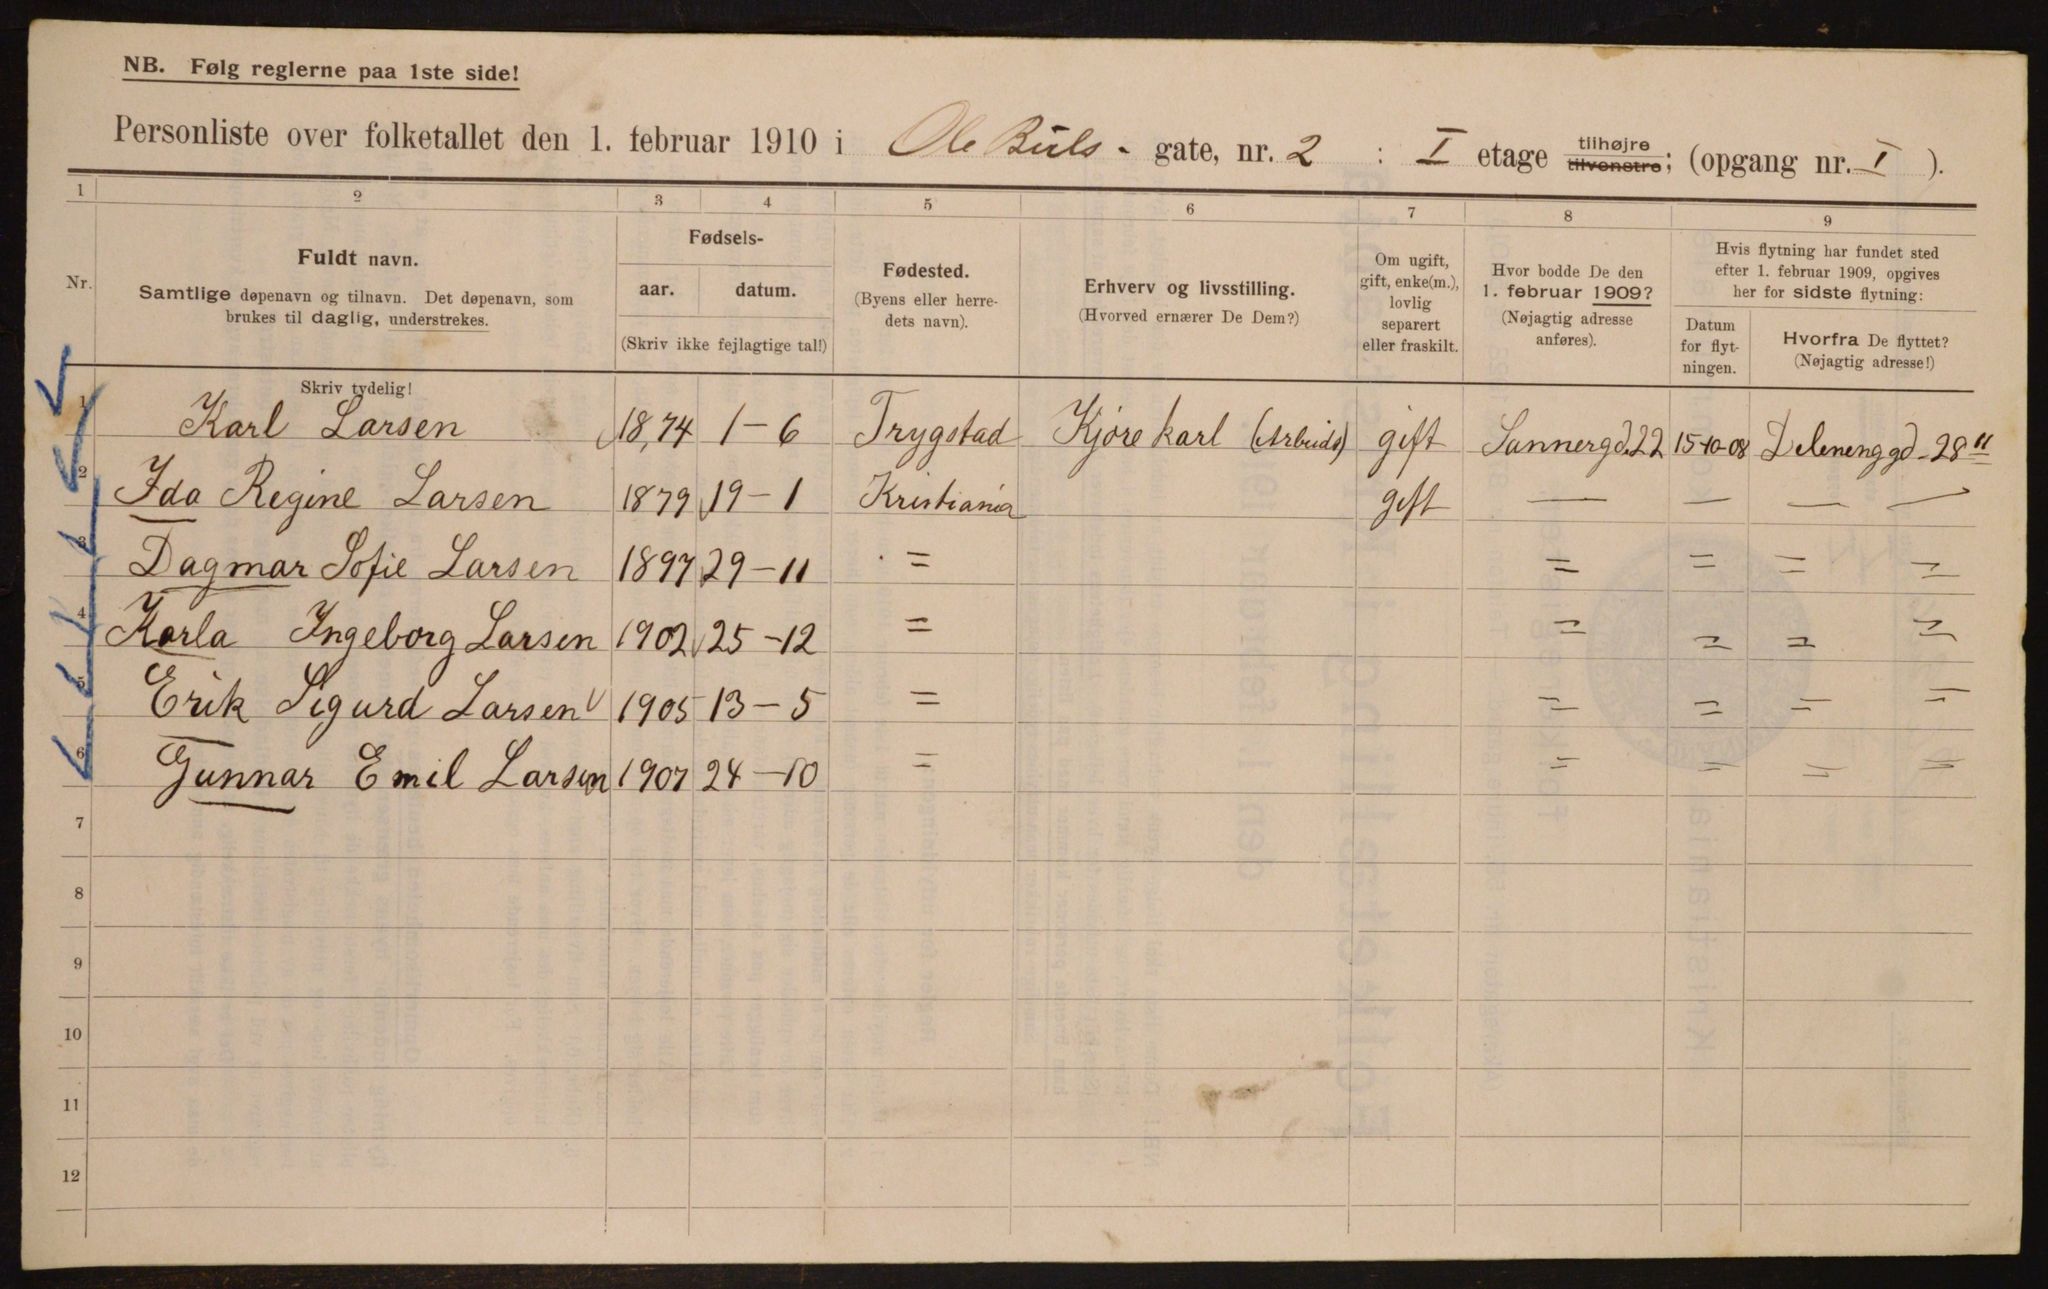 NB. Følg reglerne paa 1ste side!
Personliste over folketallet den 1. februar 1910 i Ole Buls - gate, nr. 2 : I etage tilhøjre tilvenstre; (opgang nr. I ).
1 2 3 4 5 6 7 8 9
Nr.
Fuldt navn.
Samtlige døpenavn og tilnavn. Det døpenavn, som
brukes til daglig, understrekes.
Fødsels-
aar. datum.
(Skriv ikke fejlagtige tal!)
Fødested.
(Byens eller herre-
dets navn).
Erhverv og livsstilling.
(Hvorved ernærer De Dem?)
Om ugift,
gift, enke(m.),
lovlig
separert
eller fraskilt.
Hvor bodde De den
1. februar 1909?
(Nøjagtig adresse
anføres).
Hvis flytning har fundet sted
efter 1. februar 1909, opgives
her for sidste flytning:
Datum
for flyt-
ningen.
Hvorfra De flyttet?
(Nøjagtig adresse!)
Skriv tydelig!
1 Karl Larsen 18,74 1 - 6 Trygstad Kjørekarl (Arbeids) gift Sannergd. 22 15-10-08 Delenenggd - 28 "
2 Ida Regine Larsen 1879 19 - 1 Kristiania gift — — — —
3 Dagmar Sofie Larsen 1897 29 - 11 = = = = =
4 Karla Ingeborg Larsen 1902 25 - 12 = = = = =
5 Erik Sigurd Larsen 1905 13 - 5 = = = = =
6 Gunnar Emil Larsen 1907 24 - 10 = = = = =
7
8
9
10
11
12